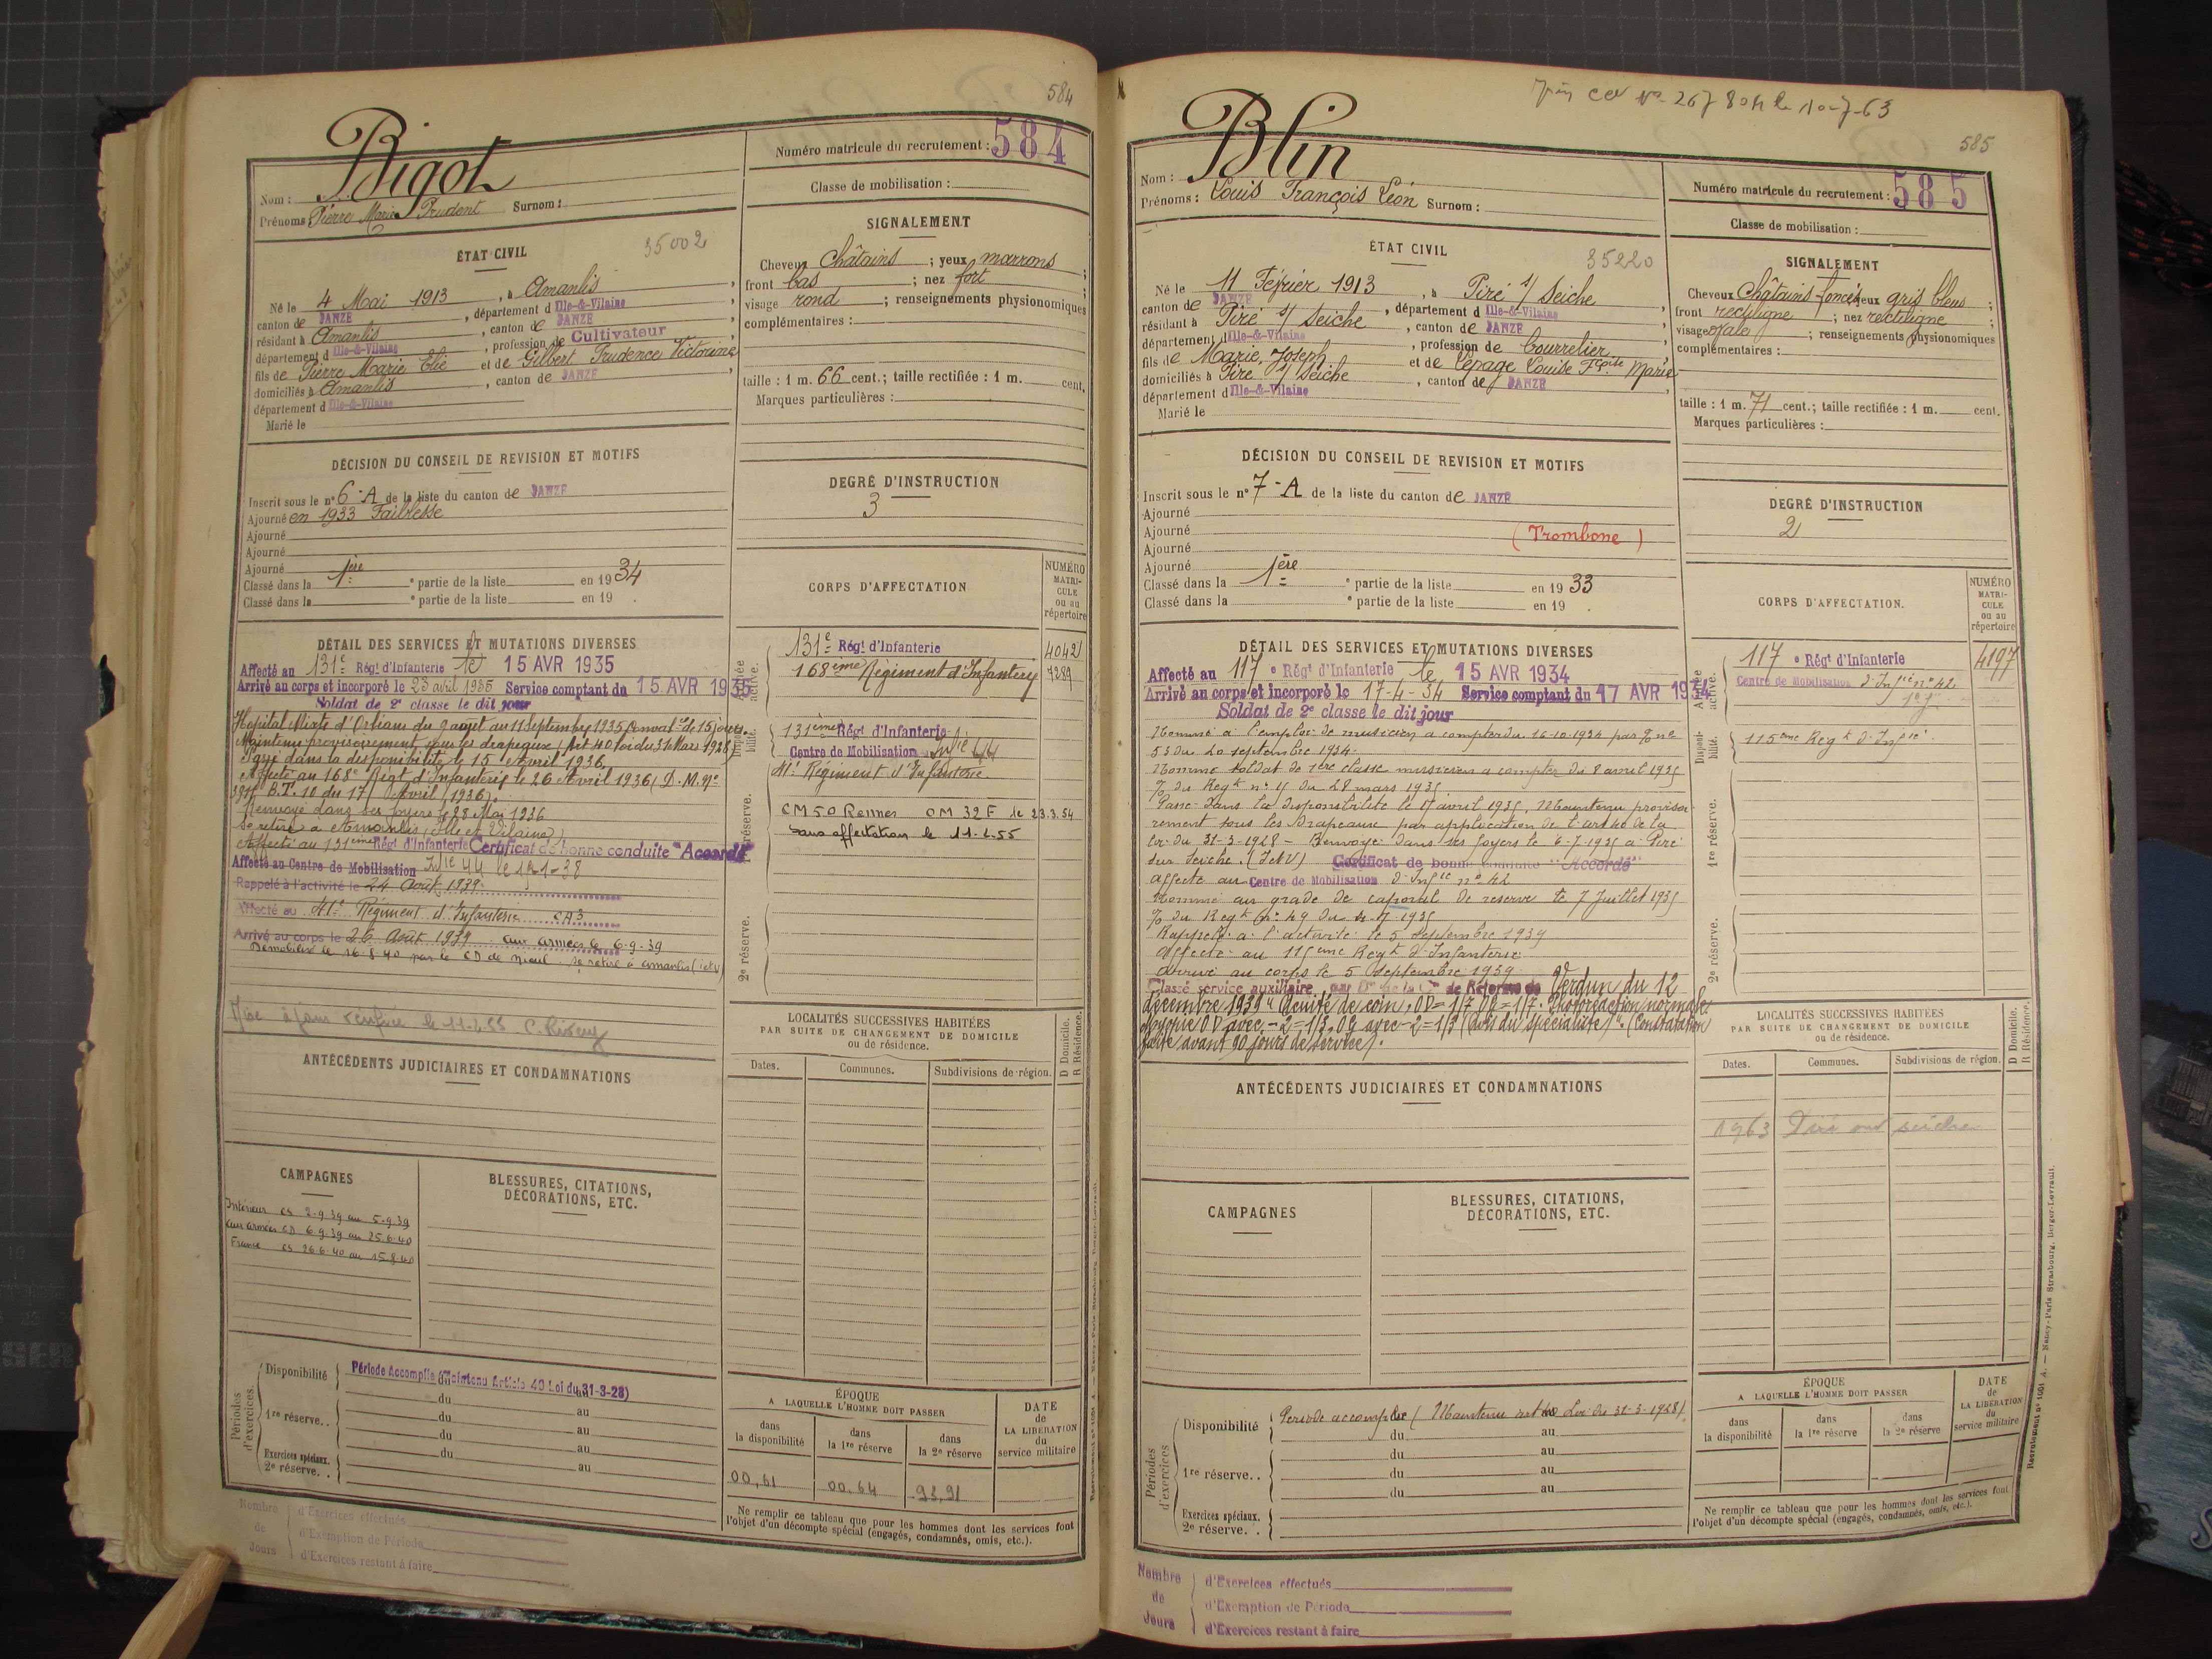 584
Bigot
Nom :
Prénoms : Pierre Marie Prudent Surnom :
Numéro matricule du recrutement : 584
Classe de mobilisation :
ÉTAT CIVIL
35002
Né le 4 Mai 1913, à Amanlis,
canton de JANZÉ, département d Ille-&-Vilaine
résidant à Amanlis, canton de JANZÉ,
département d Ille-&-Vilaine, profession de Cultivateur
fils de Pierre Marie Elie et de Gilbert Prudence Victorine
domiciliés à Amanlis, canton de JANZÉ,
département d Ille-&-Vilaine
Marié le
SIGNALEMENT
Cheveux Châtains ; yeux marrons ;
front bas ; nez fort ;
visage rond ; renseignements physionomiques
complémentaires :
taille : 1 m. 66 cent.; taille rectifiée : 1 m. cent.
Marques particulières :
DÉCISION DU CONSEIL DE REVISION ET MOTIFS
Inscrit sous le n° 6-A de la liste du canton de JANZÉ
Ajourné en 1933 Faiblesse
Ajourné
Ajourné
Ajourné
Classé dans la 1ère e partie de la liste en 1934
Classé dans la e partie de la liste en 19 .
DEGRÉ D'INSTRUCTION
3
CORPS D'AFFECTATION
NUMÉRO MATRI-CULE ou au répertoire
DÉTAIL DES SERVICES ET MUTATIONS DIVERSES
Affecté au 131e Régt d'Infanterie le 15 AVR 1935
Arrivé au corps et incorporé le 23 avril 1935 Service comptant du 15 AVR 1935
Soldat de 2e classe le dit jour
Hopital Mixte d'Orléans du 9 août au 11 Septembre 1935 Conval ce de 15 jours.
Maintenu provisoirement sous les drapeaux (Art 40 loi du 31 Mars 1928)
Passé dans la disponibilité le 15 Avril 1936
Affecté au 168e Régt d'Infanterie le 26 Avril 1936 (D.M. n°
B.T. 10 du 17 Avril 1936).
Renvoyé dans ses foyers le 28 Mai 1936
Se retire à Amanlis (Ille et Vilaine)
Affecté au 131ème Régt d'Infanterie Certificat de bonne conduite "Accordé"
Affecté au Centre de Mobilisation Inf ie 44 le
Rappelé à l'activité le 24 Août 1939
Affecté au 41e Régiment d'Infanterie CA3
Arrivé au corps le 26 Août 1939 aux armées le 6-9-39
Démobilisé le 16-8-40 par le CD de se retire à Amanlis (I et V)
le 11-2-55
Armée active.
131e Régt d'Infanterie 4042
168ème Régiment d'Infanterie 7289
Disponibilité.
131ème Régt d'Infanterie
Centre de Mobilisation Inf ie 44
41e Régiment d'Infanterie
1re réserve.
CM 50 Rennes OM 32 F le 23.3.54
Sans affectation le 11-2-55
2e réserve.
ANTÉCÉDENTS JUDICIAIRES ET CONDAMNATIONS
LOCALITÉS SUCCESSIVES HABITÉES
PAR SUITE DE CHANGEMENT DE DOMICILE
ou de résidence.
Dates. Communes. Subdivisions de région. D Domicile. R Résidence.
CAMPAGNES
Intérieur CS 2-9-39 au 5-9-39
aux armées CD 6-9-39 au 25-6-40
France CS 26-6-40 au 15-8-40
BLESSURES, CITATIONS,
DÉCORATIONS, ETC.
Périodes d'exercices.
Disponibilité Période Accomplie (Maintenu Article 40 Loi du 31-3-28)
du au
1re réserve. . du au
du au
du au
Exercices spéciaux. 2e réserve. . du au
ÉPOQUE
A LAQUELLE L'HOMME DOIT PASSER
dans la disponibilité dans la 1re réserve dans la 2e réserve
DATE de LA LIBÉRATION du service militaire
00,61 00,64 93,91
Ne remplir ce tableau que pour les hommes dont les services font
l'objet d'un décompte spécial (engagés, condamnés, omis, etc.).
Nombre de Jours
d'Exercices effectués
d'Exemption de Période
d'Exercices restant à faire
le 10-7-63
585
Blin
Nom :
Prénoms : Louis François Léon Surnom :
Numéro matricule du recrutement : 585
Classe de mobilisation :
ÉTAT CIVIL
35220
Né le 11 Février 1913, à Piré s/ Seiche,
canton de JANZÉ, département d Ille-&-Vilaine
résidant à Piré s/ Seiche, canton de JANZÉ,
département d Ille-&-Vilaine, profession de Bourrelier
fils de Marie, Joseph et de Lepage Louise Fçoise Marie
domiciliés à Piré s/ Seiche, canton de JANZÉ,
département d Ille-&-Vilaine
Marié le
SIGNALEMENT
Cheveux Châtains foncés yeux gris bleus ;
front rectiligne ; nez rectiligne ;
visage ovale ; renseignements physionomiques
complémentaires :
taille : 1 m. 71 cent.; taille rectifiée : 1 m. cent.
Marques particulières :
DÉCISION DU CONSEIL DE REVISION ET MOTIFS
Inscrit sous le n° 7-A de la liste du canton de JANZÉ
Ajourné
Ajourné (Trombone)
Ajourné
Ajourné
Classé dans la 1ère e partie de la liste en 1933
Classé dans la e partie de la liste en 19 .
DEGRÉ D'INSTRUCTION
2
CORPS D'AFFECTATION.
NUMÉRO MATRI-CULE ou au répertoire
DÉTAIL DES SERVICES ET MUTATIONS DIVERSES
Affecté au 117e Régt d'Infanterie le 15 AVR 1934
Arrivé au corps et incorporé le 17-4-34 Service comptant du 17 AVR 1934
Soldat de 2e classe le dit jour
Nommé à l'emploi de musicien à compter du 16-10-1934 par
53 du 20 septembre 1934.
Nommé soldat de 1ère classe musicien à compter du 8 avril 1935
du Regt n° 15 du 28 mars 1935
Passé dans la disponibilité le 17 avril 1935, Maintenu provisoi-
rement sous les drapeaux par application de l'art 40 de la
loi du 31-3-1928 - Renvoyé dans ses foyers le 6-7-1935 à Piré
sur Seiche. (I et V) Certificat de bonne conduite "Accordé"
Affecté au Centre de Mobilisation d'Inf ie n° 42
Nommé au grade de caporal de réserve le 7 Juillet 1935
du Regt n° 49 du 4-7-1935
Rappelé à l'activité le 5 Septembre 1939
Affecté au 115ème Regt d'Infanterie
Arrivé au corps le 5 Septembre 1939
Classé service auxiliaire, par Don de la Con de Réforme de Verdun du 12
décembre 1939 "Acuité de loin, OD = 1/7 OG = 1/7. Photoréaction normale.
Myopie OD avec - 2 = 1/3, OG avec - 2 = 1/3 (avis du spécialiste)". (Constatation
faite avant 90 jours de service).
Armée active.
117e Régt d'Infanterie 4197
Centre de Mobilisation d'Inf ie n° 42
Disponibilité.
115ème Regt d'Inf ie
1re réserve.
2e réserve.
ANTÉCÉDENTS JUDICIAIRES ET CONDAMNATIONS
LOCALITÉS SUCCESSIVES HABITÉES
PAR SUITE DE CHANGEMENT DE DOMICILE
ou de résidence.
Dates. Communes. Subdivisions de région. D Domicile. R Résidence.
1963 Piré sur seiche
CAMPAGNES
BLESSURES, CITATIONS,
DÉCORATIONS, ETC.
Périodes d'exercices
Disponibilité Periode accomplie (Maintenu art 40 Loi du 31-3-1928).
du au
1re réserve. . du au
du au
du au
Exercices spéciaux. 2e réserve. .
ÉPOQUE
A LAQUELLE L'HOMME DOIT PASSER
dans la disponibilité dans la 1re réserve dans la 2e réserve
DATE de LA LIBÉRATION du service militaire
Ne remplir ce tableau que pour les hommes dont les services font
l'objet d'un décompte spécial (engagés, condamnés, omis, etc.).
Recrutement n° 1061 A. — Nancy-Paris Strasbourg, Berger-Levrault.
Nombre de Jours
d'Exercices effectués
d'Exemption de Période
d'Exercices restant à faire